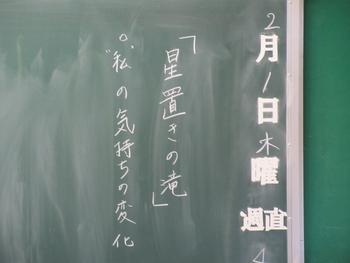 2月1日木曜
週直
4
「星置きの滝」
。"私"の気持ちの変化